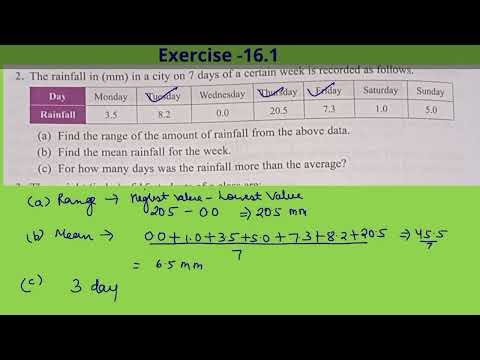 Exercise -16.1
2. The rainfall in (mm) in a city on 7 days of a certain week is recorded as follows.
Day Monday Tuesday Wednesday Thursday Friday Saturday Sunday
Rainfall 3.5 8.2 0.0 20.5 7.3 1.0 5.0
(a) Find the range of the amount of rainfall from the above data.
(b) Find the mean rainfall for the week.
(c) For how many days was the rainfall more than the average?
(a) Range → Value - Lowest Value
20.5 - 0.0 ⇒ 20.5 mm
(b) Mean → 0.0+1.0+3.5+5.0+7.3+8.2+20.5 ⇒ 45.5
7 7
= 6.5 mm
(c) 3 day